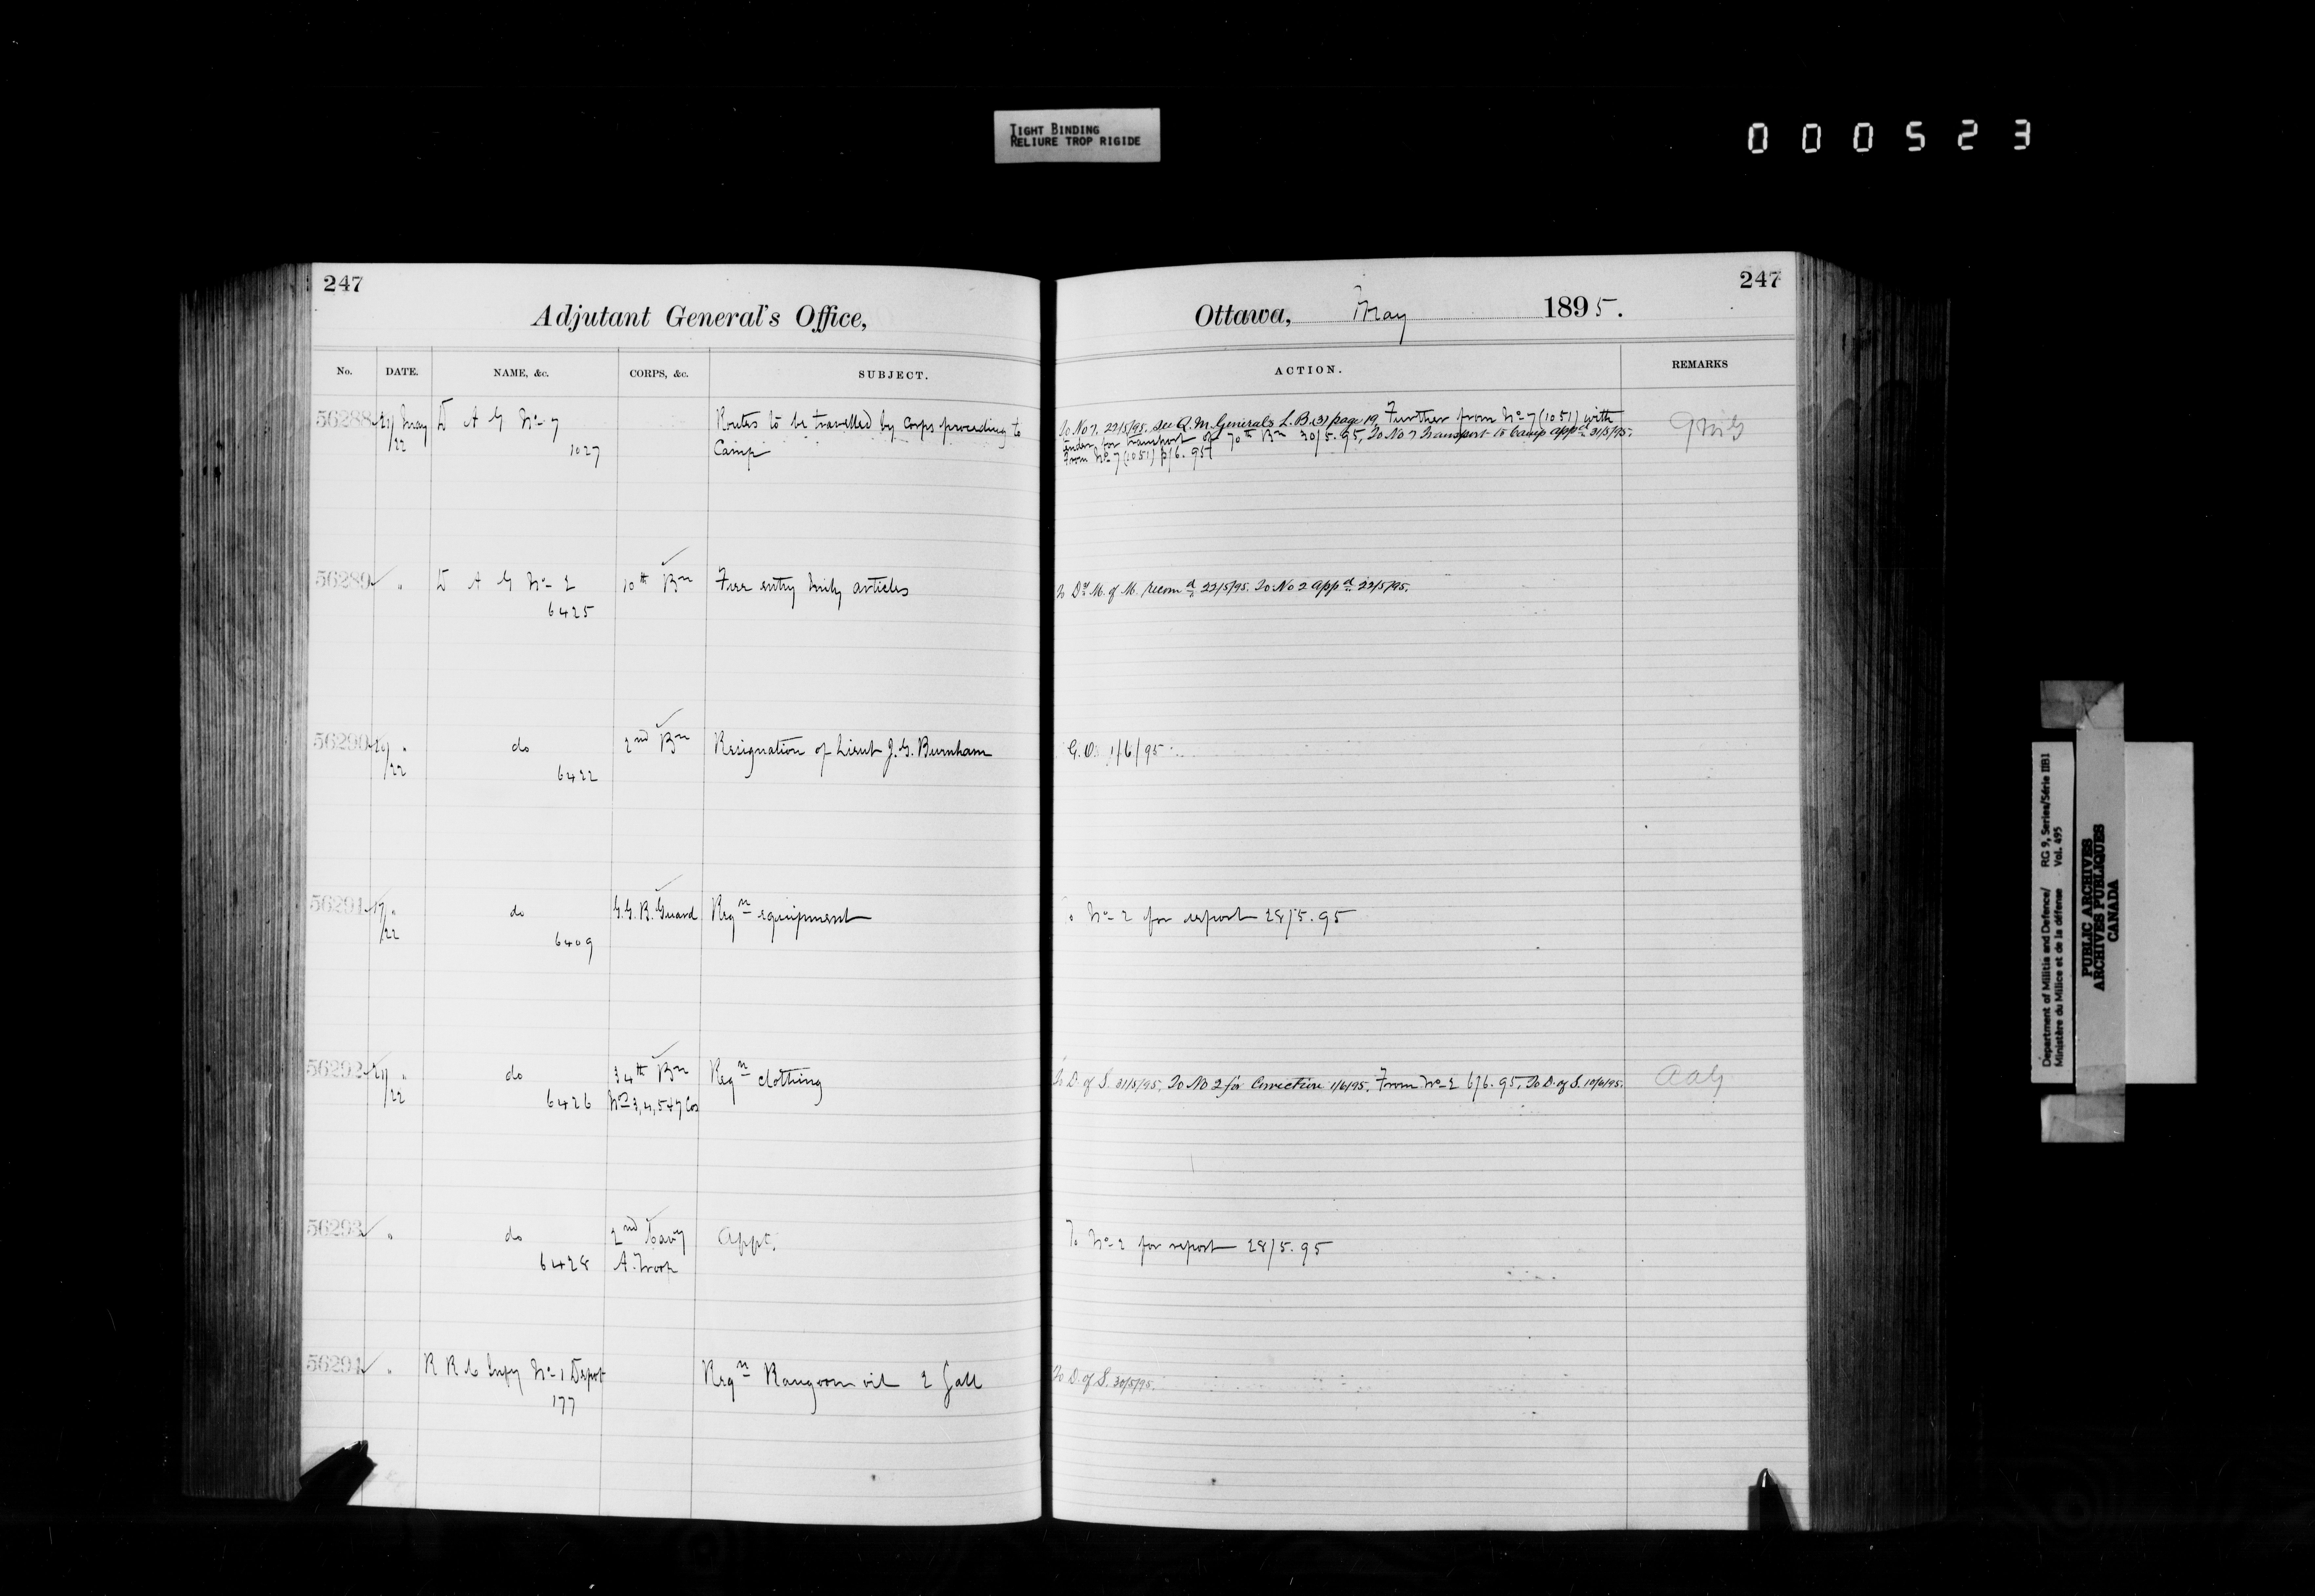 TIGHT BINDING
RELIURE TROP RIGIDE
000523
247
247
Adjutant General's Office,
Ottawa, May 1895.
No. DATE. NAME, &c. CORPS, &c. SUBJECT. ACTION. REMARKS
56288 21/22 May D A G No 7 1027 Routes to be travelled by Corps proceeding to
Camp
To No 7, 22/5/95. See Q.M. Generals L.B.(3) page 19, Further from No 7 (1051) with
tender for transport of 70th Bn 30/5.95, To No 7 Transport to Camp appd 31/5/95.
from No 7 (1051) 6.95 QMG
56289 " D A G No 2 10th Bn Free entry Mily articles
6425
To Dy M. of M. recomd 22/5/95. To No 2 appd 22/5/95.
56290 " do 2nd Bn Resignation of Lieut J.G. Burnham
/22 6422
G.O. 1/6/95
56291 17 " do G.G.B. Guard Reqn equipment
/22 6409
To No 2 for report 28/5.95
56292 21 " do 34th Bn Reqn clothing
/22 6426 Nos 3,4,5 & 7 Cos
To D. of S. 31/5/95. To No 2 for Correction 1/6/95. From No 2 6/6.95. To D. of S. 10/6/95. AAG
56293 " do 2nd Cavy Appt.
6428 A. Troop
To No 2 for report 28/5.95
56294 " R R C Infy No 1 Depot Reqn Rangoon oil 2 Gall
177
To D. of S. 30/5/95.
Department of Militia and Defence/ RG 9, Series/Série IIB1
Ministère du Milice et de la défense Vol. 495
PUBLIC ARCHIVES
ARCHIVES PUBLIQUES
CANADA